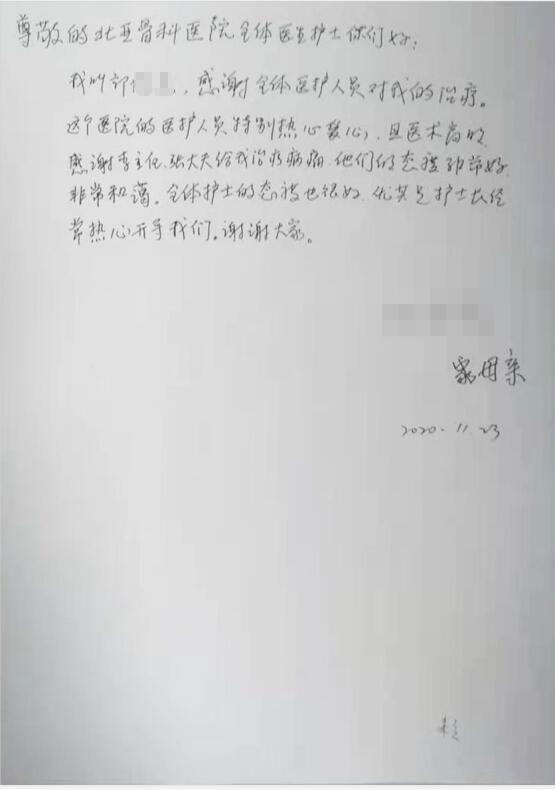 尊敬的北亚骨科医院全体医生护士你们好：
我叫郭，感谢全体医护人员对我的治疗。
这个医院的医护人员特别热心爱心，且医术高明
感谢李主任、张大夫给我治疗病痛，他们的态度非常好
非常和蔼。全体护士的态度也很好，尤其是护士长经
常热心开导我们。谢谢大家。
母亲
2020.11.23